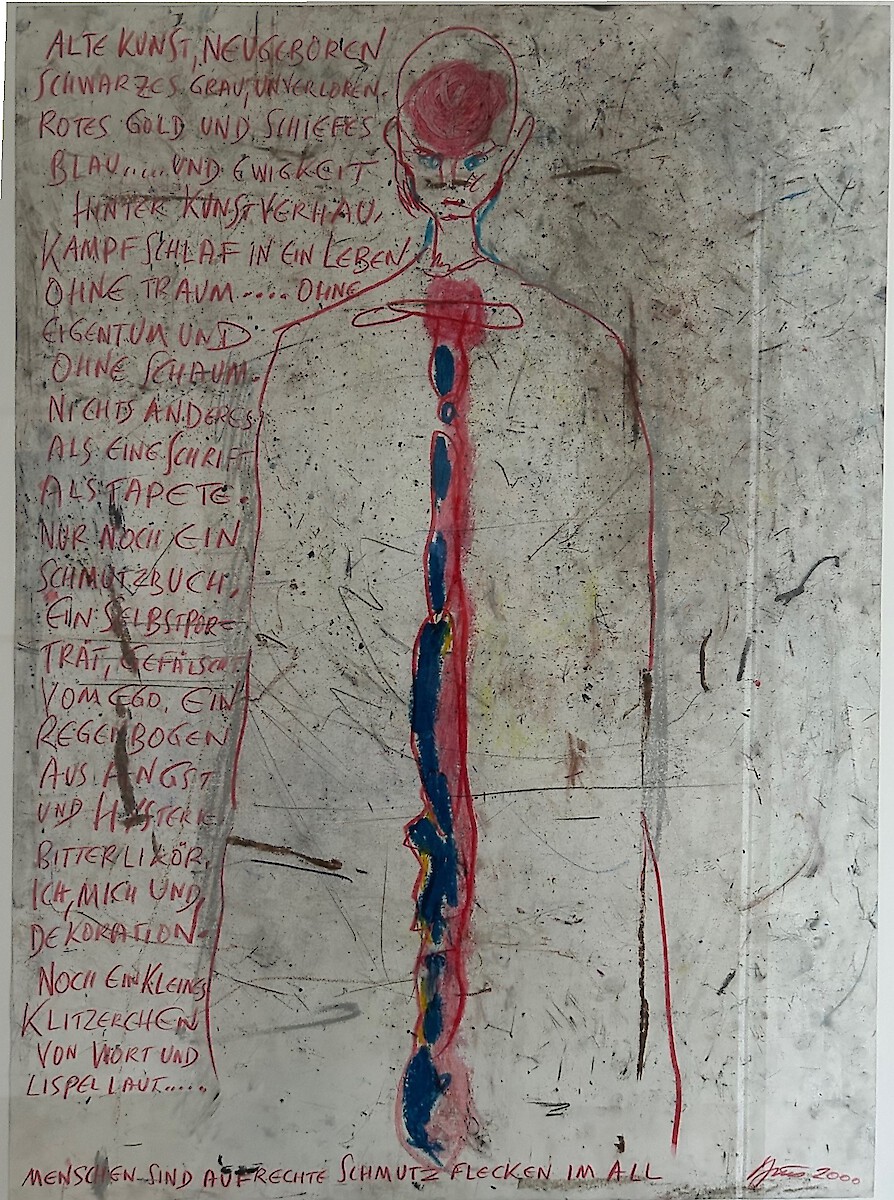 ALTE KUNST, NEUGEBOREN
SCHWARZES GRAU, UNVERLOREN.
ROTES GOLD UND SCHIEFES
BLAU.....UND EWIGKEIT
HINTER KUNSTVERHAU,
KAMPFSCHLAF IN EIN LEBEN
OHNE TRAUM.... OHNE
EIGENTUM UND
OHNE SCHAUM.
NICHTS ANDERES
ALS EINE SCHRIFT
ALS TAPETE.
NUR NOCH EIN
SCHMUTZBUCH,
EIN SELBSTPOR=
TRÄT, GEFÄLSCHT
VOM EGO, EIN
REGENBOGEN
AUS ANGST
UND HYSTERIE
BITTERLIKÖR,
ICH, MICH UND
DEKORATION-
NOCH EIN KLEINES
KLITZERCHEN
VON WORT UND
LISPELLAUT.....
MENSCHEN SIND AUFRECHTE SCHMUTZFLECKEN IM ALL
2000